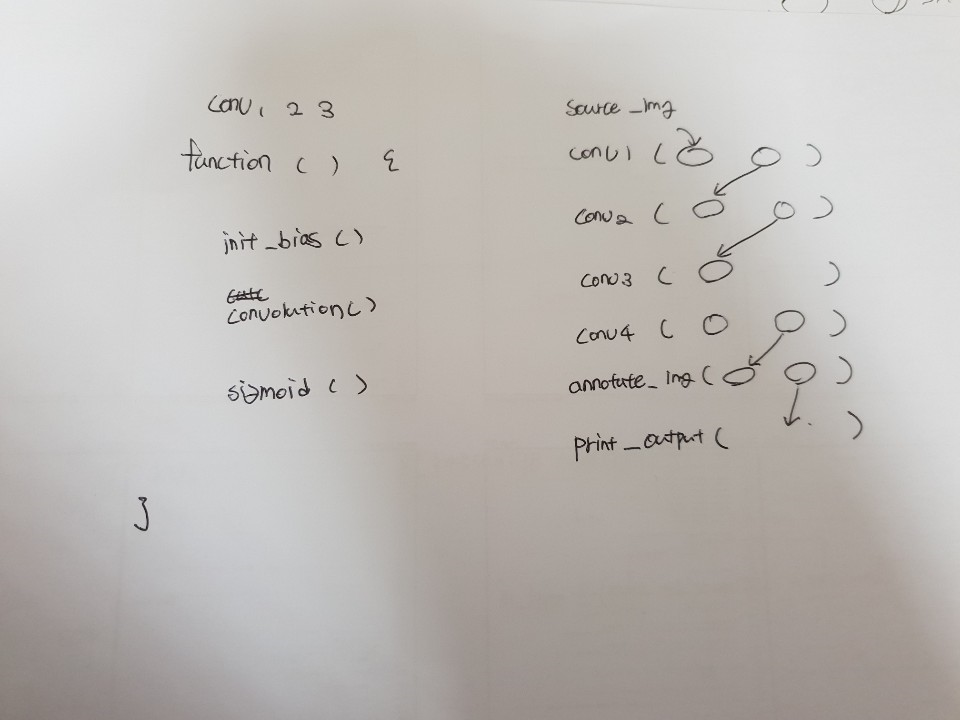 conv 1 2 3
function ( ) {
init_bias ( )
convolution( )
sigmoid ( )
}
source _img
conv1 ( )
conv2 ( )
conv3 ( )
conv4 ( )
annotate_ img ( )
print _output ( )